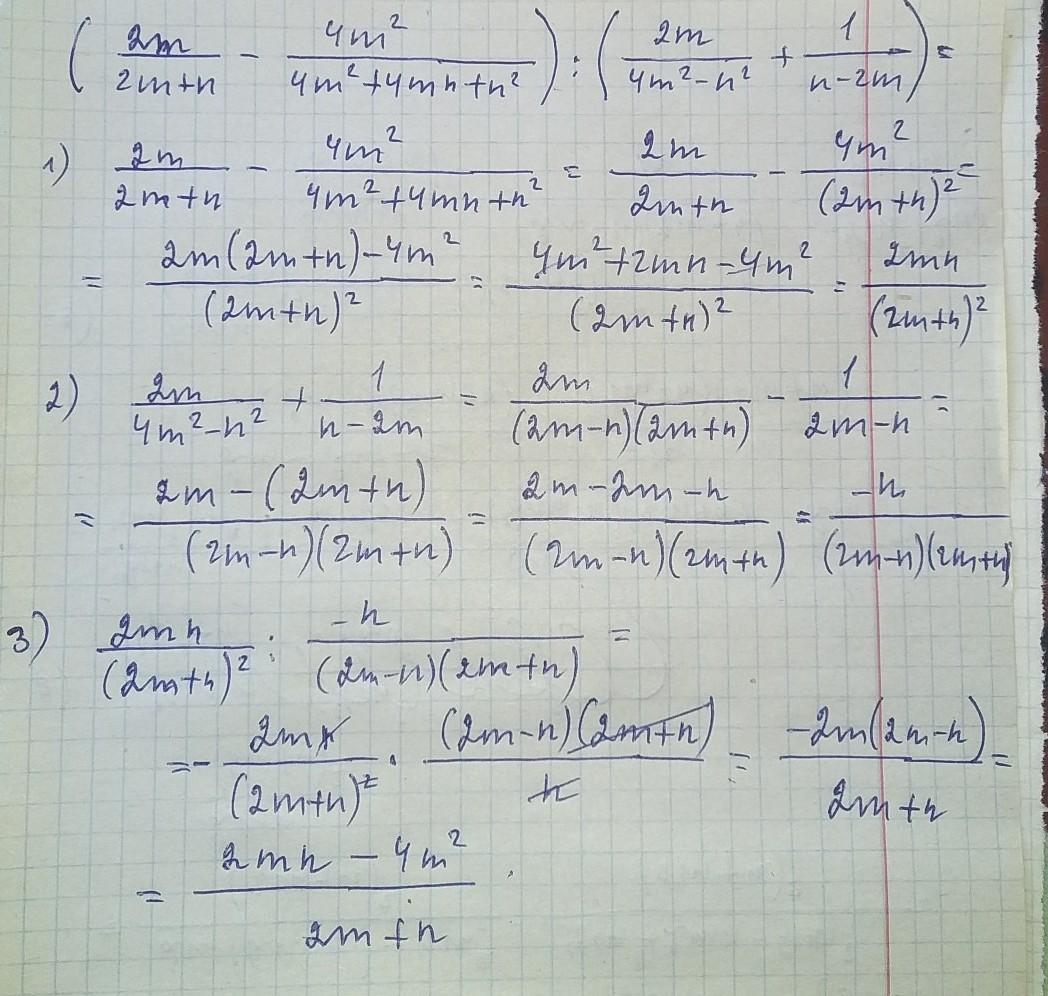 (2m/(2m+n) - 4m²/(4m²+4mn+n²)) : (2m/(4m²-n²) + 1/(n-2m)) =
1) 2m/(2m+n) - 4m²/(4m²+4mn+n²) = 2m/(2m+n) - 4m²/(2m+n)² =
= (2m(2m+n)-4m²)/(2m+n)² = (4m²+2mn-4m²)/(2m+n)² = 2mn/(2m+n)²
2) 2m/(4m²-n²) + 1/(n-2m) = 2m/((2m-n)(2m+n)) - 1/(2m-n) =
= (2m-(2m+n))/((2m-n)(2m+n)) = (2m-2m-n)/((2m-n)(2m+n)) = -n/((2m-n)(2m+n))
3) 2mn/(2m+n)² : -n/((2m-n)(2m+n)) =
= - 2mn/(2m+n)² · (2m-n)(2m+n)/n = -2m(2m-n)/(2m+n) =
= (2mn-4m²)/(2m+n).